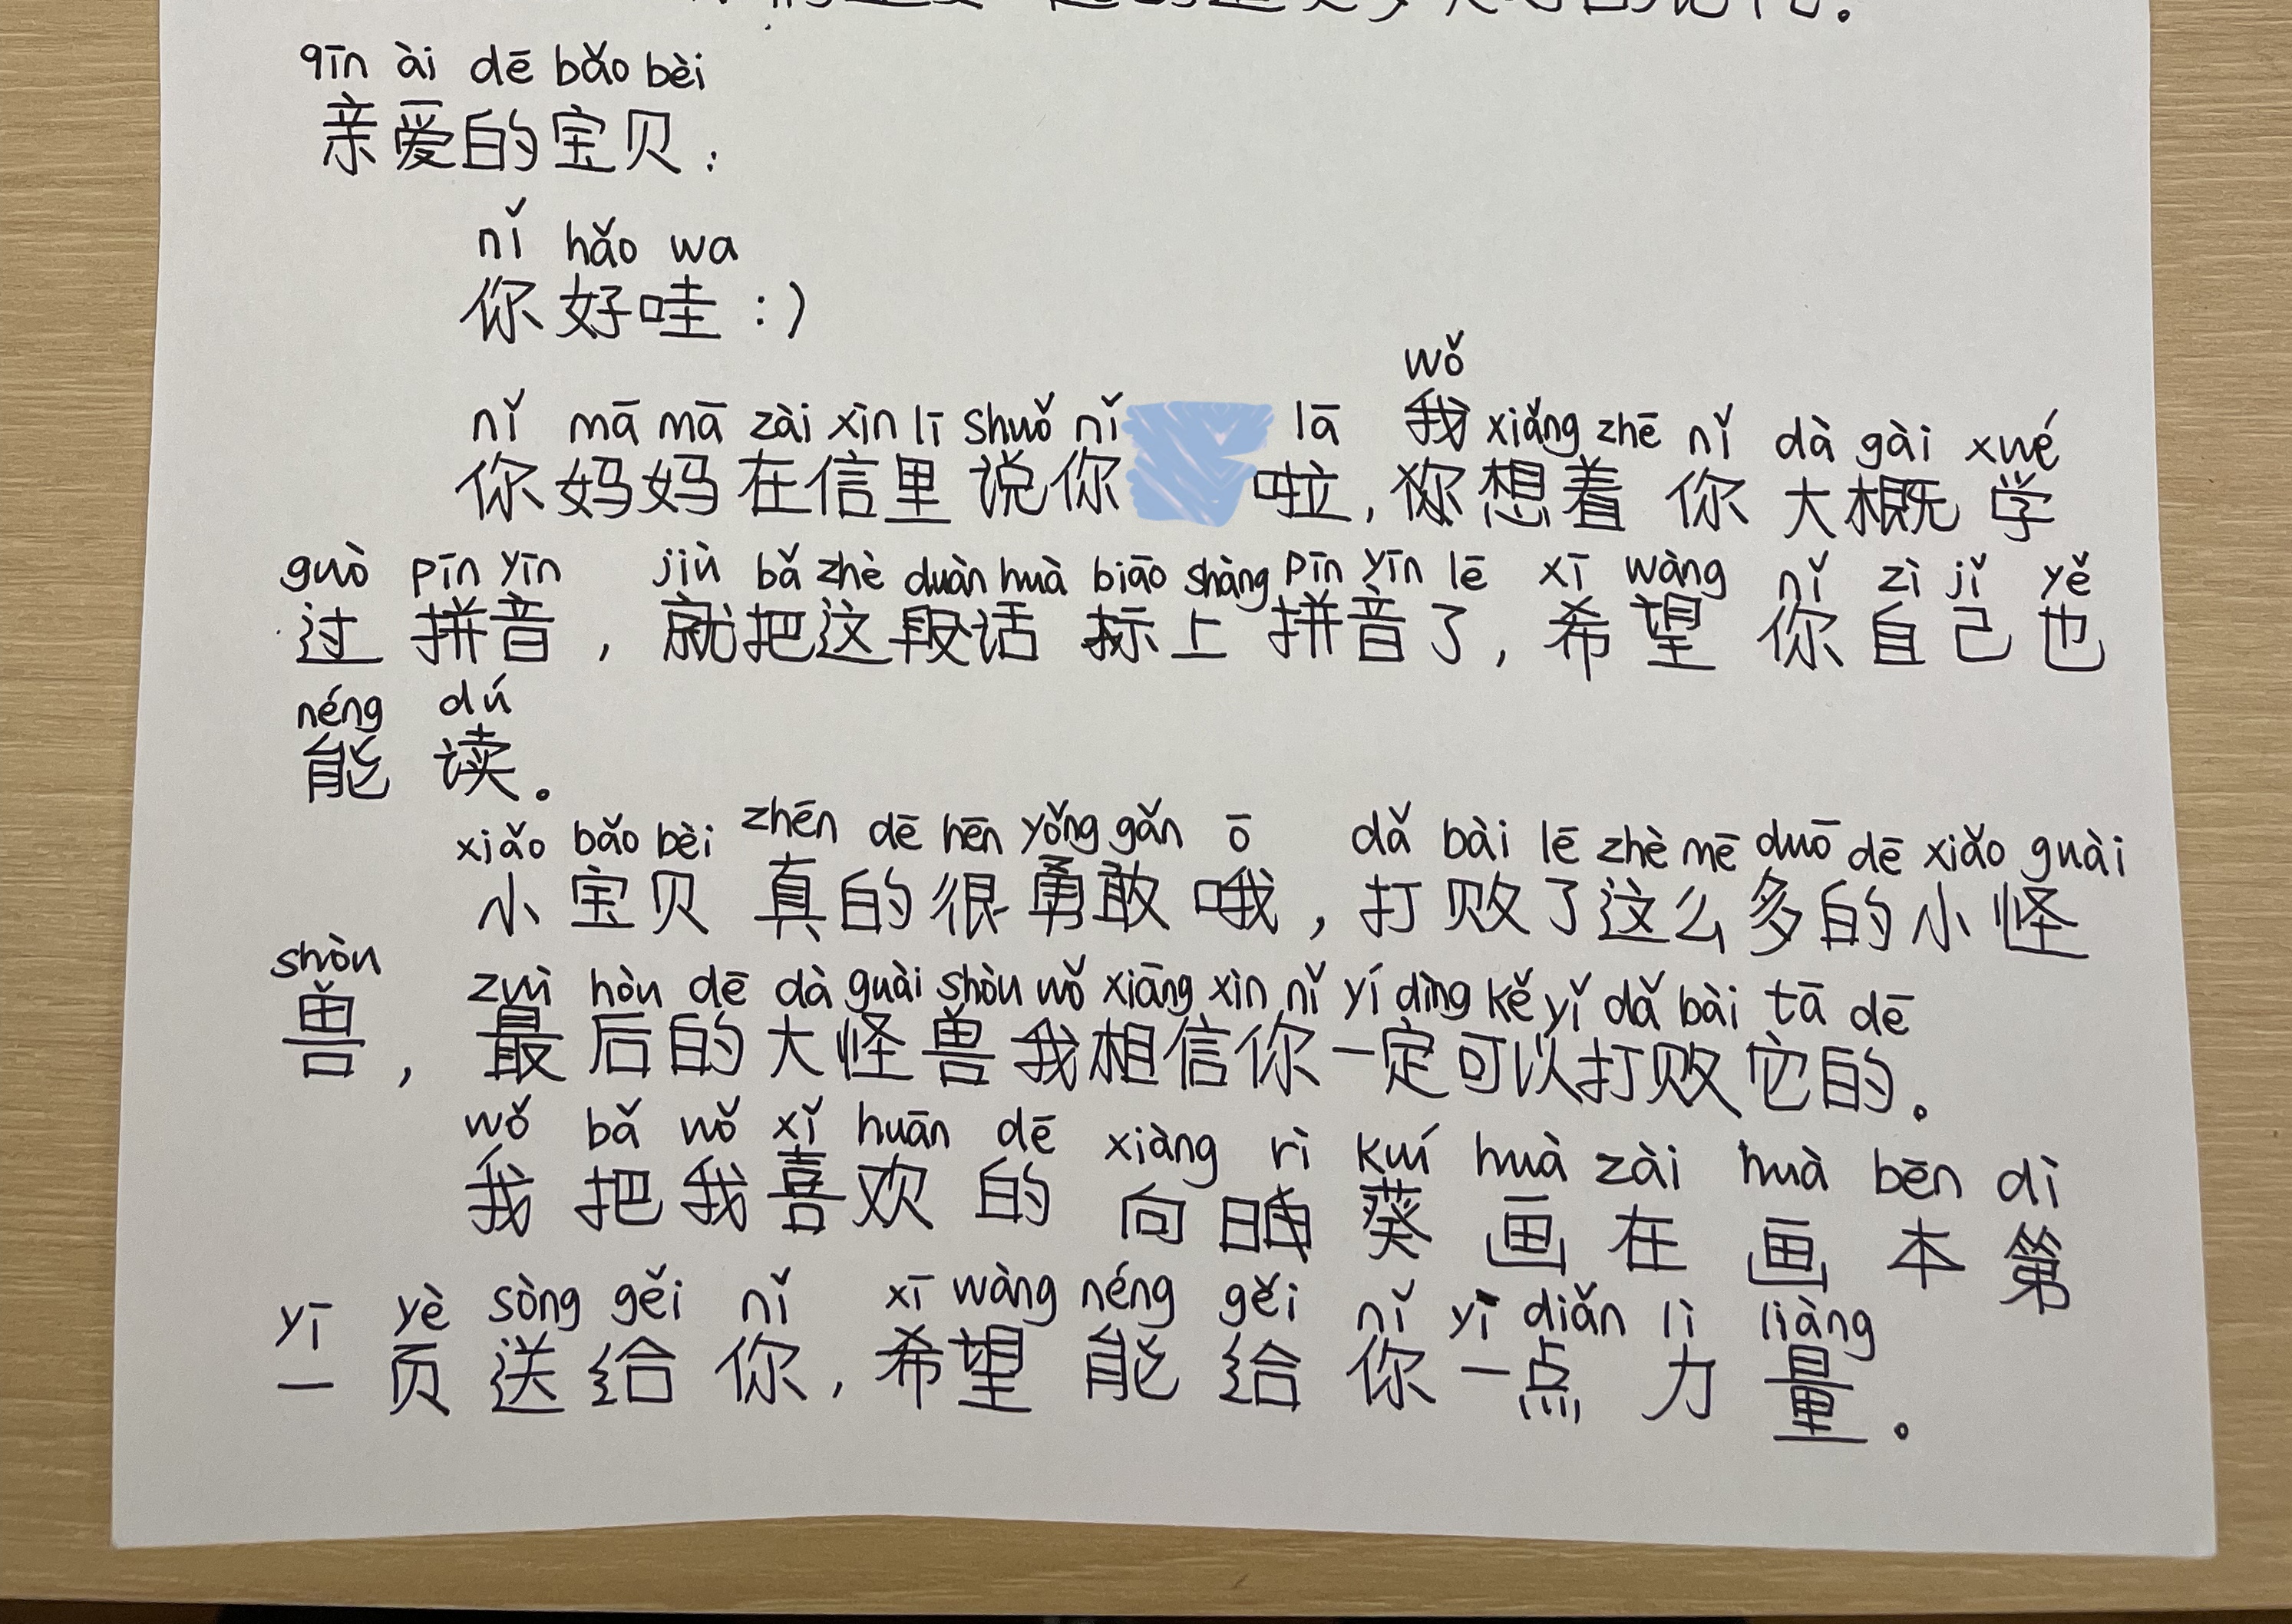 qīn ài dē bǎo bèi
亲爱的宝贝：
nǐ hǎo wa
你好哇 :)
wǒ
nǐ mā mā zài xìn lī shuǒ nǐ lā 我 xiǎng zhē nǐ dà gài xué
你妈妈在信里说你 啦，想着你大概学
guò pīn yīn jiù bǎ zhè duàn huà biāo shàng pīn yīn lē xī wàng nǐ zì jǐ yě
过拼音，就把这段话标上拼音了，希望你自己也
néng dú
能读。
xiǎo bǎo bèi zhēn dē hēn yǒng gǎn ō dǎ bài lē zhè mē duō dē xiǎo guài
小宝贝真的很勇敢哦，打败了这么多的小怪
shòu zuì hòu dē dà guài shòu wǒ xiāng xìn nǐ yí dìng kě yǐ dǎ bài tā dē
兽，最后的大怪兽我相信你一定可以打败它的。
wǒ bǎ wǒ xǐ huān dē xiàng rì kuí huà zài huà bēn dì
我把我喜欢的向日葵画在画本第
yī yè sòng gěi nǐ xī wàng néng gěi nǐ yī diǎn lì liàng
一页送给你，希望能给你一点力量。